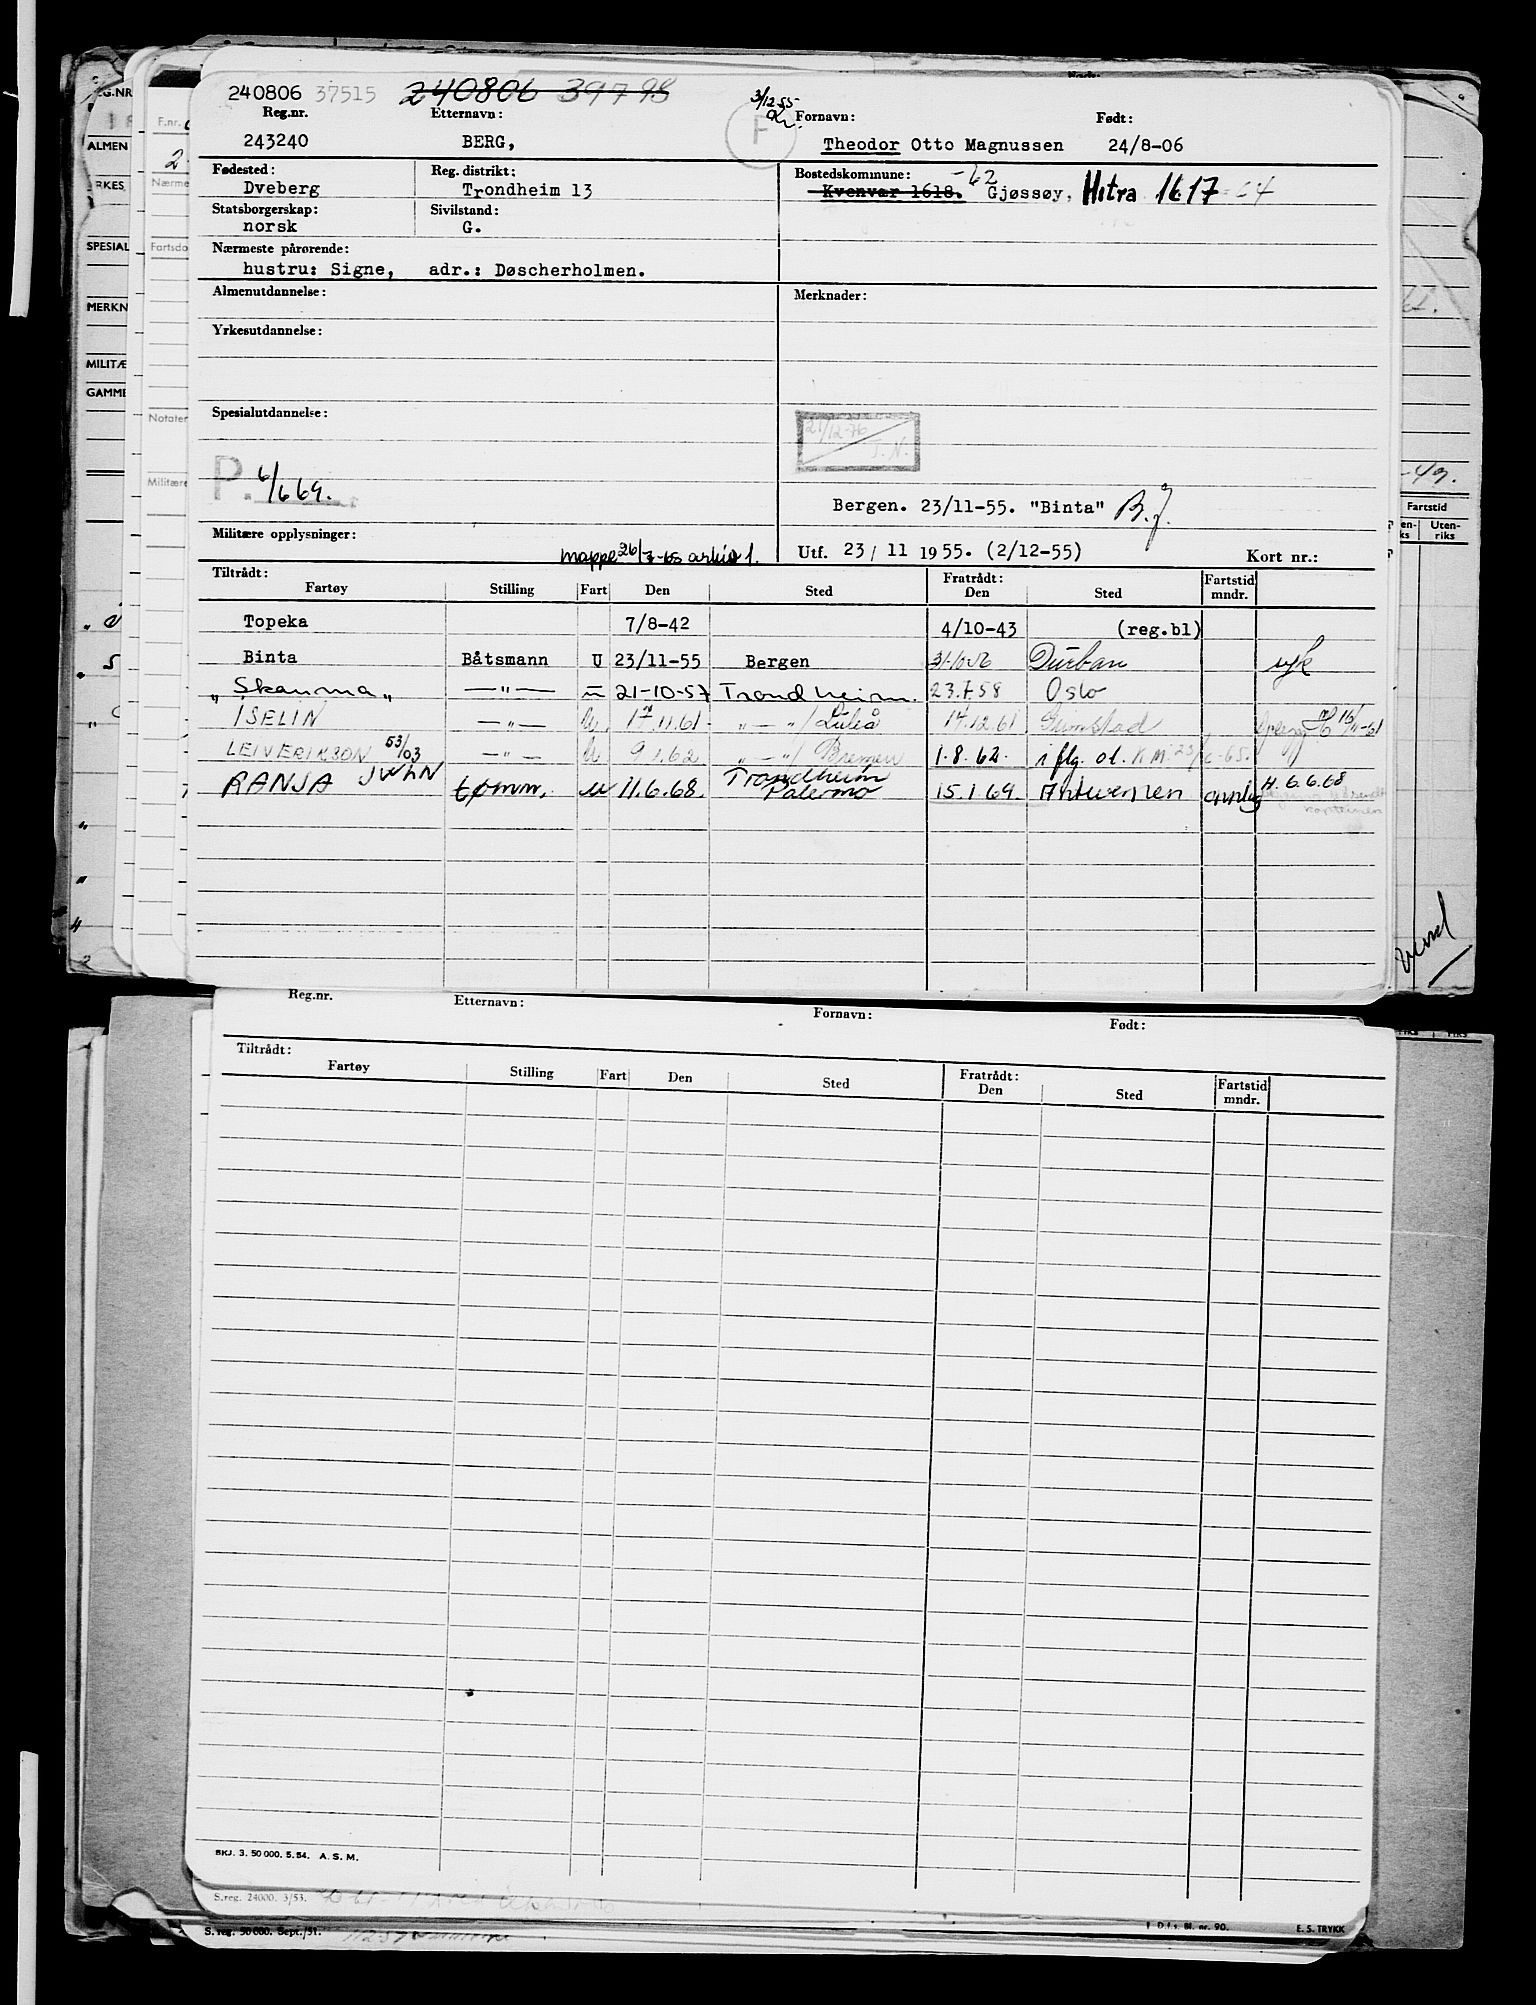 240806 37515 240806 39798 3/12 55
Reg.nr. Etternavn: F Fornavn: Født:
243240 BERG, Theodor Otto Magnussen 24/8-06
Fødested: Reg. distrikt: Bostedskommune: -62
Dveberg Trondheim 13 Kvenvær 1618. Gjøssøy, Hitra 1617 -64
Statsborgerskap: Sivilstand:
norsk G.
Nærmeste pårørende:
hustru: Signe, adr.: Døscherholmen.
Almenutdannelse: Merknader:
Yrkesutdannelse:
Spesialutdannelse:
21/12-76
J.N.
P. 6/6 69.
Bergen. 23/11-55. "Binta" B.J.
Militære opplysninger:
mappe 26/7-65 arkiv 1. Utf. 23/11 1955. (2/12-55) Kort nr.:
Tiltrådt: Fratrådt: Fartstid
Fartøy Stilling Fart Den Sted Den Sted mndr.
Topeka 7/8-42 4/10-43 (reg.bl)
Binta Båtsmann U 23/11-55 Bergen 31-10-56 Durban syk
"Skauma" —"— 21-10-57 Trondheim. 23.7.58 Oslo
ISELIN —"— U. 17.11.61 "—"/Luleå 14.12.61 Grimstad
LEIV ERIKSON 53/03 —"— U 9.1.62 "—"/Bremen 1.8.62. iflg. ol. K.M.
RANJA JWLN tømm. U 11.6.68. Trondheim Palermo 15.1.69. Antwerpen H. 6.6.68
Reg.nr. Etternavn: Fornavn: Født:
Tiltrådt: Fratrådt: Fartstid
Fartøy Stilling Fart Den Sted Den Sted mndr.
BKJ. 3. 50 000. 5. 54. A. S. M.
S.reg. 24000. 3/53.
S. reg. 50 000. Sept./51. D.f.s. Bl. nr. 90. E. S. TRYKK
EG.NR
ALMEN
RKES
SPESIAL
MERKN
MILITÆ
GAMME
F.nr.
Nærme
Fartsdo
Notater
Militære
-49.
Fartstid
Uten-
riks